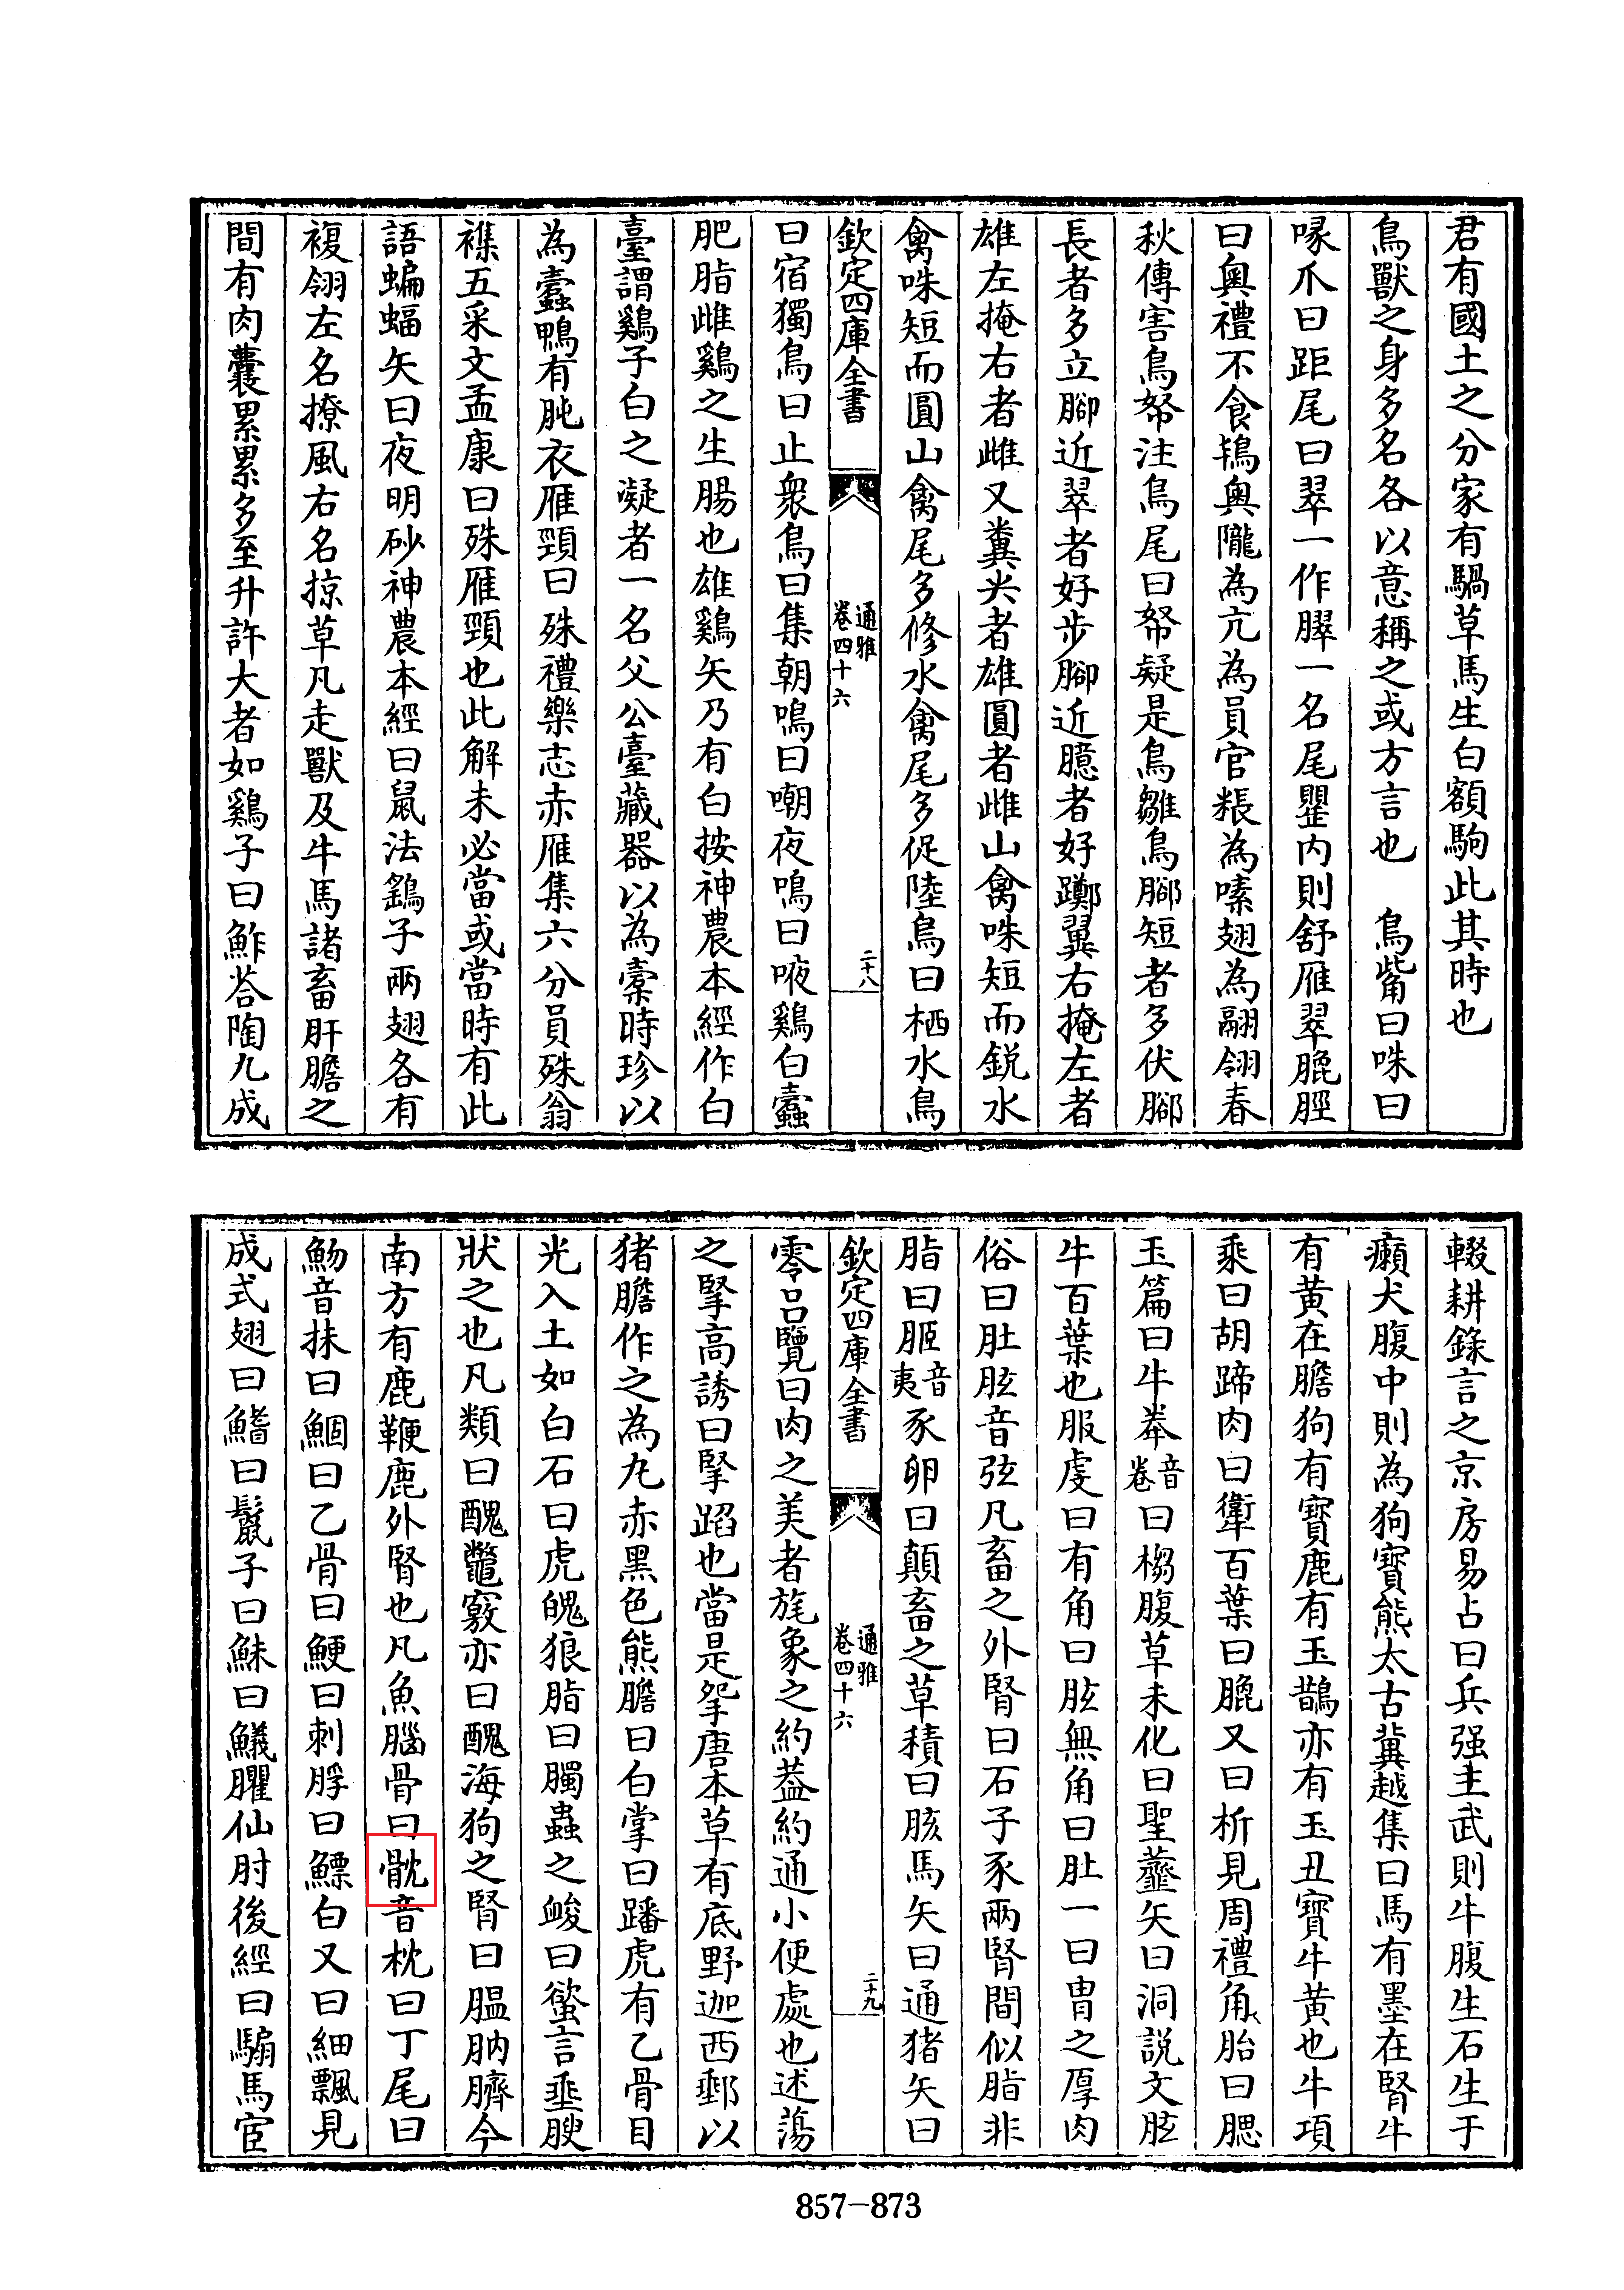 君有國土之分家有騧草馬生白額駒此其時也
鳥獸之身多名各以意稱之或方言也　鳥觜曰咮曰
喙爪曰距尾曰翠一作臎一名尾罌内則舒雁翠臗脛
曰奧禮不食鴇奧隴為亢為員官粻為嗉翅為翮翎春
秋傳害鳥帑注鳥尾曰帑疑是鳥雛鳥腳短者多伏腳
長者多立腳近翠者好步腳近臆者好躑翼右掩左者
雄左掩右者雌又糞尖者雄圓者雌山禽咮短而銳水
禽咮短而圓山禽尾多修水禽尾多促陸鳥曰栖水鳥
欽定四庫全書
通雅
卷四十六
二十八
曰宿獨鳥曰止衆鳥曰集朝鳴曰嘲夜鳴曰㖡鷄白蠹
肥脂雌鷄之生腸也雄鷄矢乃有白按神農本經作白
臺謂鷄子白之凝者一名父公臺藏器以為橐時珍以
為蠹鴨有肫衣雁頸曰殊禮樂志赤雁集六分員殊翁
襍五采文孟康曰殊雁頸也此解未必當或當時有此
語蝙蝠矢曰夜明砂神農本經曰鼠法鷄子兩翅各有
複翎左名撩風右名掠草凡走獸及牛馬諸畜肝膽之
間有肉囊累累多至升許大者如鷄子曰鮓荅陶九成
輟耕錄言之京房易占曰兵强主武則牛腹生石生于
癩犬腹中則為狗寶熊太古冀越集曰馬有墨在腎牛
有黄在膽狗有寶鹿有玉鵲亦有玉丑寶牛黄也牛項
乘曰胡蹄肉曰䡺百葉曰膍又曰析見周禮角胎曰腮
玉篇曰牛桊音卷曰㮲腹草未化曰聖虀矢曰洞説文胘
牛百葉也服虔曰有角曰胘無角曰肚一曰胃之厚肉
俗曰肚胘音弦凡畜之外腎曰石子豕兩腎間似脂非
脂曰胹音夷豕卵曰顛畜之草積曰胲馬矢曰通猪矢曰
欽定四庫全書
通雅
卷四十六
二十九
零吕覽曰肉之美者旄象之約葢約通小便處也述蕩
之掔高誘曰掔蹈也當是挐唐本草有底野迦西郵以
猪膽作之為丸赤黑色熊膽曰白掌曰蹯虎有乙骨目
光入土如白石曰虎魄狼脂曰臅蟲之㕙曰螢言垂腴
狀之也凡類曰醜鼈竅亦曰醜海狗之腎曰膃肭臍今
南方有鹿鞭鹿外腎也凡魚腦骨曰䯈音枕曰丁尾曰
鮅音抹曰鯝曰乙骨曰鯁曰刺脬曰鰾白又曰細飄見
成式翅曰鰭曰鬛子曰䱅曰鱶臞仙肘後經曰騸馬宦